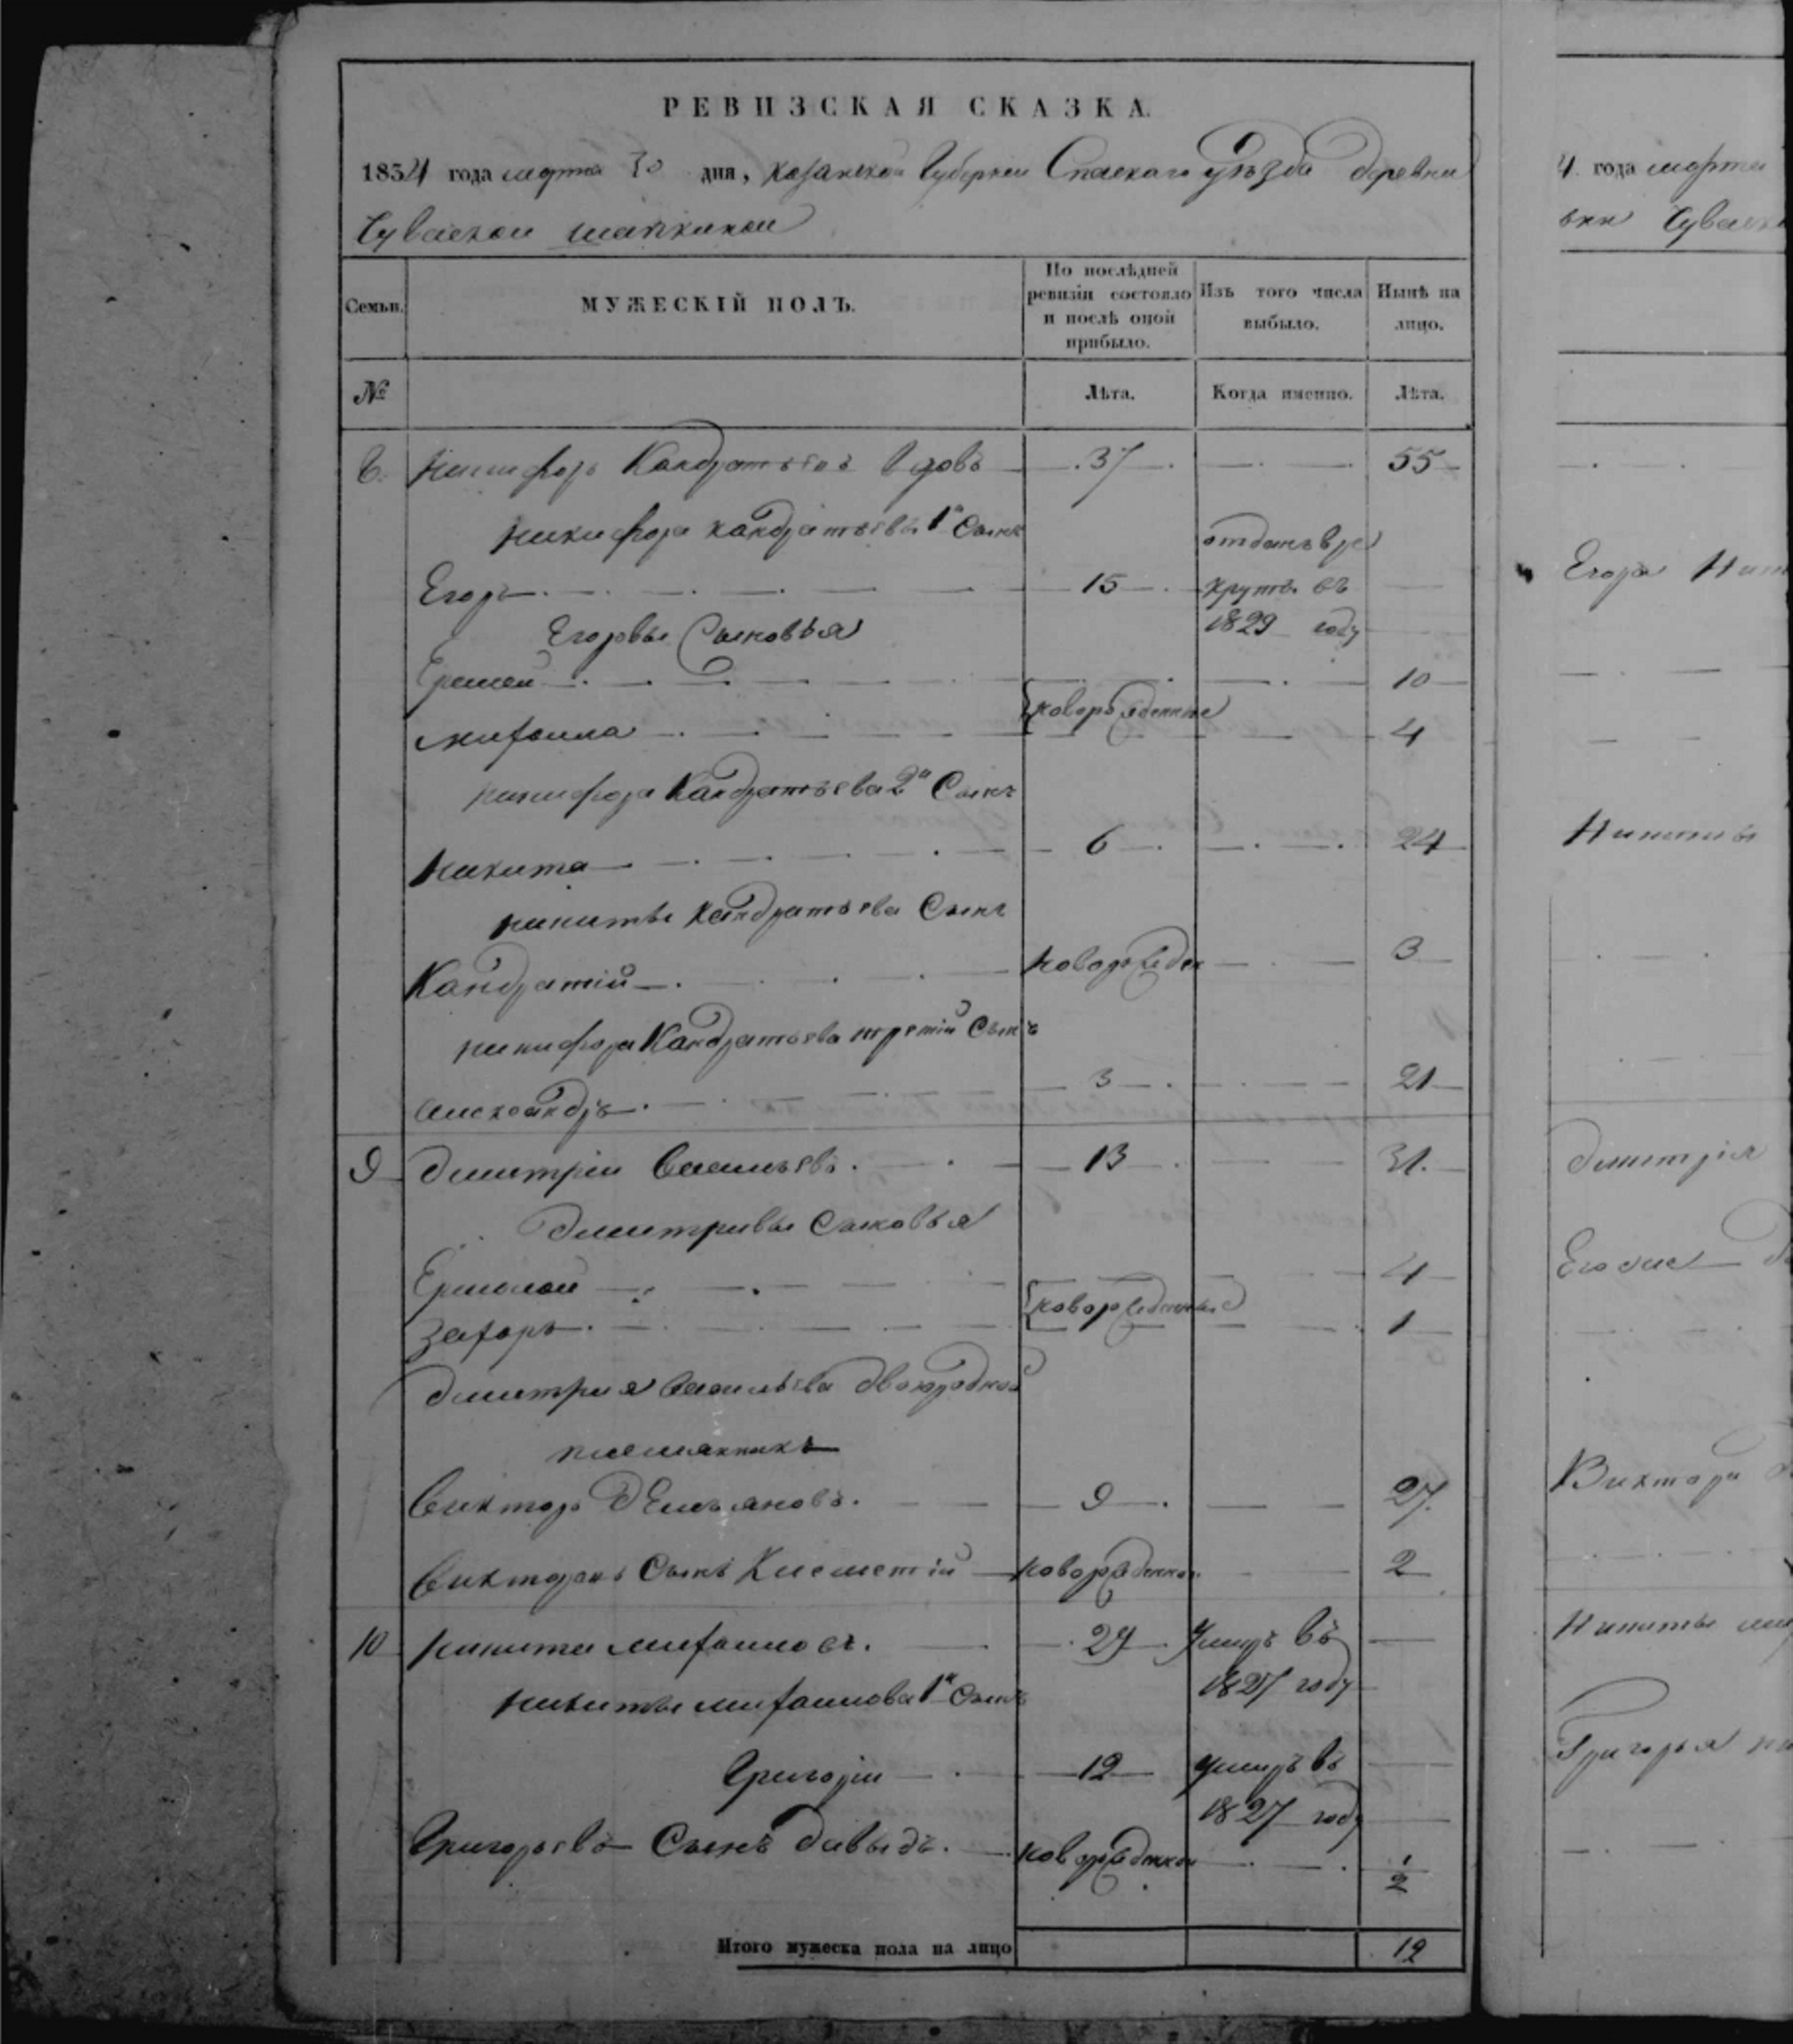 РЕВИЗСКАЯ СКАЗКА.
1834 года марта 30 дня, казанской Губернии Спаскаго уѣзда деревни
Чуваской шапкиной
Семьи.
МУЖЕСКІЙ ПОЛЪ.
По послѣдней ревизіи состояло и послѣ оной прибыло.
Изъ того числа выбыло.
Нынѣ на лицо.
№
Лѣта.
Когда именно.
Лѣта.
никифоръ Кандратьевъ 37 55
никифора кандратьева 1й Сынъ
Егоръ 15 отданъ в ре
круты въ
1829 году
Егоровы Сыновья
Еремей 10
новорожденные
михаила 4
никифора Кандратьева 2й Сынъ
никита 6 24
никиты кандратьева Сынъ
Кандратій новорожден 3
никифора Кандратьева третій Сынъ
александръ 3 21
9 дмитрии Васильевъ 13 31
дмитривы Сыновья
Ермолай 4
новорожденные
захаръ 1
дмитрия Васильева двоюродной
племянникъ
Викторъ дЕмьяновъ 9 27
Викторовъ Сынъ Климетій новорожденной 2
10 никита михаиловъ 29 умеръ въ
1827 году
никиты михаилова 1й Сынъ
Григорiи 12 умеръ въ
1827 году
Григорьевъ Сынъ давыдъ новорожденной 1/2
Итого мужеска пола на лицо 12
4 года марта
вни Чуваск
Егора Ник
Никиты
дмитрія
Виктора
Никиты ми
Григорья ни